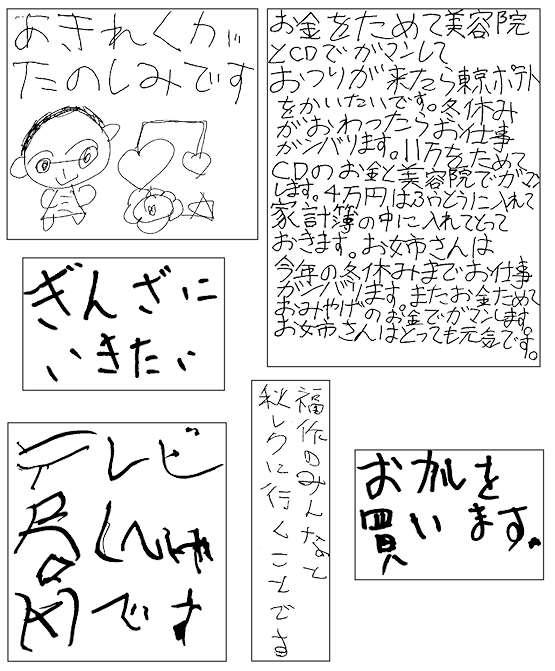 あきれくが
たのしみです
お金をためて美容院
とCDでガマンして
おつりが来たら東京ポテト
をかいたいです。冬休み
がおわったらお仕事
ガンバります。11万をためて
CDのお金と美容院でガマン
します。4万円はふうとうに入れて
家計簿の中に入れてとって
おきます。お姉さんは
今年の冬休みまでお仕事
ガンバります。またお金ためて
おみやげのお金でガマンします。
お姉さんはとっても元気です。
ぎんざに
いきたい
テレビ
です
福作のみんなと
秋レクに行くことです
おカルを
買います。